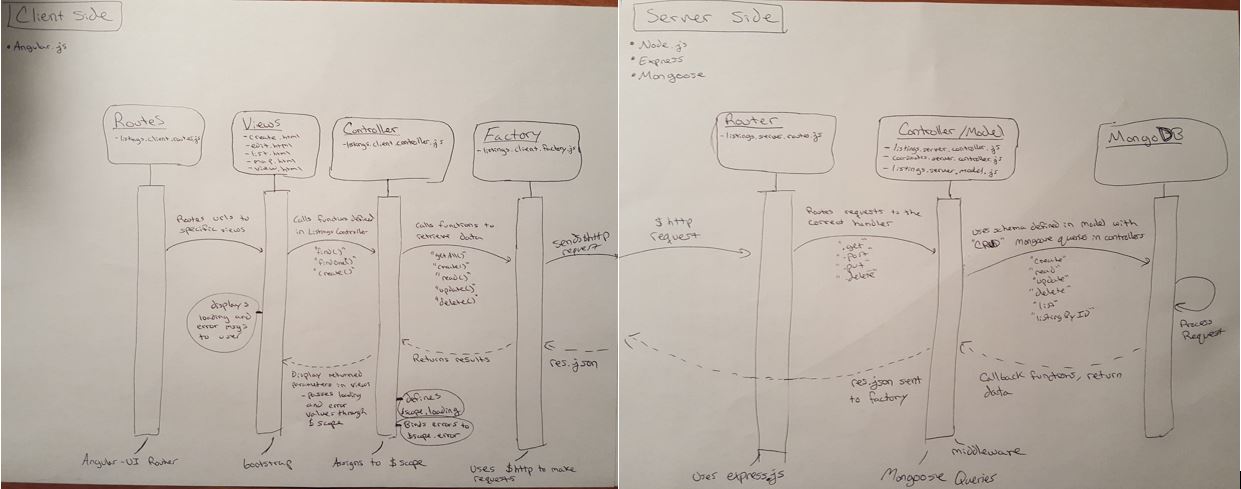 Client Side
• Angular.js
Routes
- listings.client.routes.js
Views
- create.html
- edit.html
- list.html
- map.html
- view.html
Controller
- listings.client.controller.js
Factory
- listings.client.factory.js
Routes urls to
specific views
Calls functions defined
in Listings Controller
"find()"
"findOne()"
"create()"
Calls functions to
retrieve data
"getAll()"
"create()"
"read()"
"update()"
"delete()"
sends $http
request
displays
loading and
error msgs
to user
Display returned
parameters in views
- passes loading
and error
values through
$scope
Returns results
res.json
defines
$scope.loading
Binds errors to
$scope.error
Angular-UI Router
bootstrap
Assigns to $scope
Uses $http to make
requests
Server Side
• Node.js
• Express
• Mongoose
Router
- listings.server.routes.js
Controller/Model
- listings.server.controller.js
- coordinates.server.controller.js
- listings.server.model.js
MongoDB
$http
request
Routes requests to the
correct handler
".get"
".post"
".put"
".delete"
Uses schema defined in model with
"CRUD" mongoose queries in controllers
"create"
"read"
"update"
"delete"
"list"
"listingByID"
Process
Request
res.json sent
to factory
Callback functions, return
data
Uses express.js
middleware
Mongoose Queries